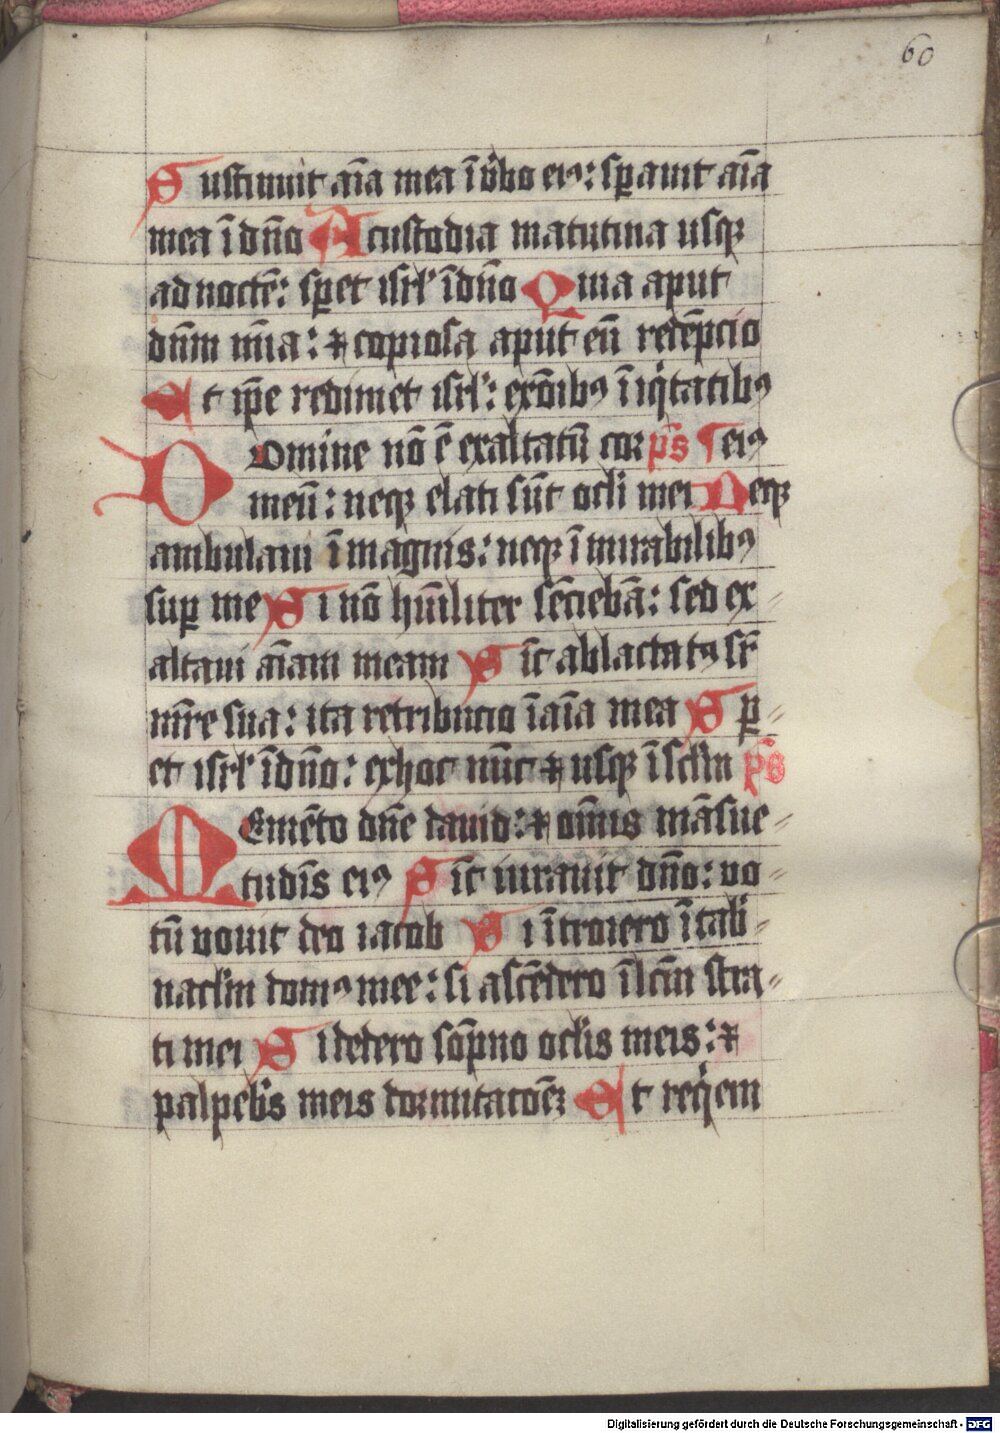 60
Sustinuit aīa mea ī v̓bo eiꝰ: sꝑauit aīa
mea ī dn̄o A custodia matutina usqꝫ
ad noctē: sꝑet isrl̓ ī dn̄o Quia aput
dn̄m mīa: ⁊ copiosa aput eū redēpcio
Et ip̄e redimet isrl̓: ex oīb̄ꝰ īiqͥtatibꝰ
Domine nō ē exaltatū cor ps̄ eiꝰ
meū: neqꝫ elati sūt ocl̓i mei Neqꝫ
ambulaui ī magnis: neqꝫ ī mirabilibꝰ
suꝑ me Si nō hūiliter sēciebā: sed ex⸗
altaui aīam meam Sic̄ ablactatꝰ sr̄
mr̄e sua: ita retribucio ī aīa mea Sꝑ⸗
et isrl̓ ī dn̄o: ex hoc nūc ⁊ usqꝫ ī scl̓m ps̄
Memēto dn̄e dauid: ⁊ om̄is māsue⸗
tudīs eiꝰ Sic̄ iurauit dn̄o: uo⸗
tū vouit deo iacob Si ītroiero ī tab̓⸗
nacl̓m domꝰ mee: si ascēdero ī lc̄m stra⸗
ti mei Si dedero sōpno ocl̓is meis: ⁊
palpebͥs meis dormitacōeꝫ Et reqͥem
Digitalisierung gefördert durch die Deutsche Forschungsgemeinschaft - DFG